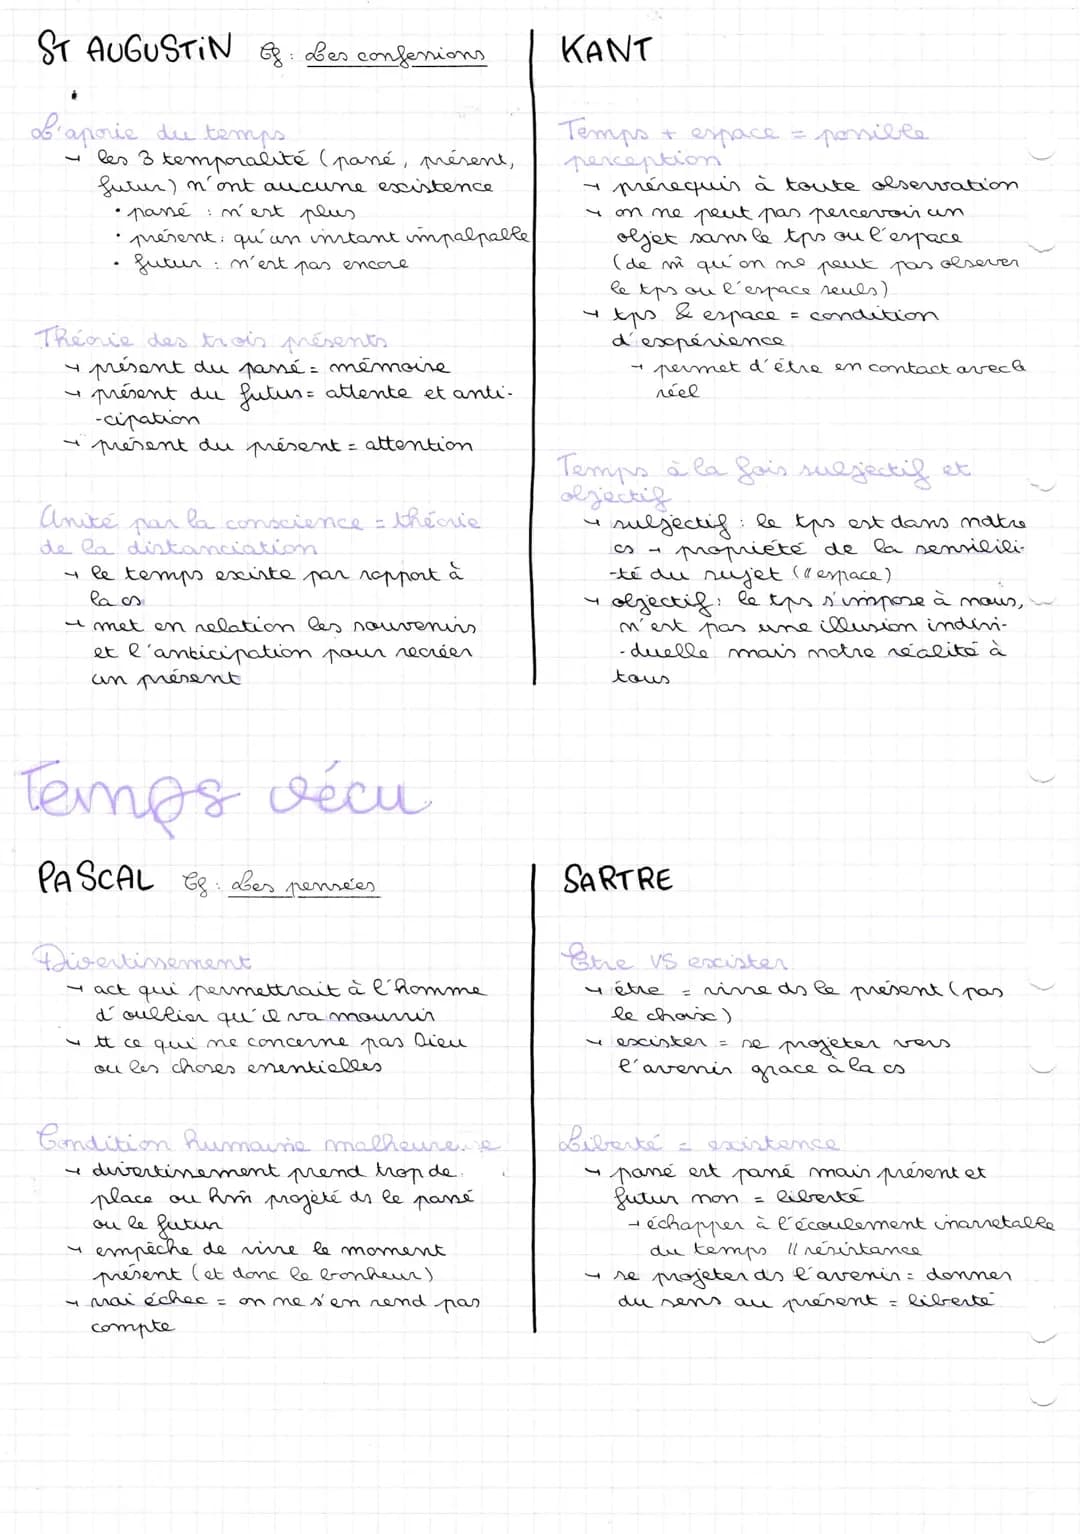 ST AUGUSTIN Cf : Les confessions
L'aporie du temps
→ les 3 temporalité (passé, présent,
futur) n'ont aucune existence
• passé : n'est plus
• présent : qu'un instant impalpable
• futur : n'est pas encore
Théorie des trois présents
→ présent du passé = mémoire
→ présent du futur = attente et anti-
-cipation
→ présent du présent = attention
Unité par la conscience = théorie
de la distanciation
→ le temps existe par rapport à
la cs
→ met en relation les souvenirs
et l'anticipation pour recréer
un présent
KANT
Temps + espace = possible
perception
→ prérequis à toute observation
→ on ne peut pas percevoir un
objet sans le tps ou l'espace
(de m̂ qu'on ne peut pas observer
le tps ou l'espace seuls)
→ tps & espace = condition
d'expérience
→ permet d'être en contact avec le
réel
Temps à la fois subjectif et
objectif
→ subjectif : le tps est dans notre
cs → propriété de la sensibili-
-té du sujet (// espace)
→ objectif : le tps s'impose à nous,
n'est pas une illusion indivi-
-duelle mais notre réalité à
tous
Temps vécu
PASCAL Cf : Les pensées
Divertissement
→ act qui permettrait à l'homme
d'oublier qu'il va mourrir
→ tt ce qui ne concerne pas Dieu
ou les choses essentielles
Condition humaine malheureuse
→ divertissement prend trop de
place ou hm̂ projété ds le passé
ou le futur
→ empêche de vivre le moment
présent (et donc le bonheur)
→ vrai échec = on ne s'en rend pas
compte
SARTRE
Etre VS exister
→ être = vivre ds le présent (pas
le choix)
→ exister = se projeter vers
l'avenir grace à la cs
Liberté = existence
→ passé est passé mais présent et
futur non = liberté
→ échapper à l'écoulement inarretable
du temps // résistance
→ se projeter ds l'avenir = donner
du sens au présent = liberté